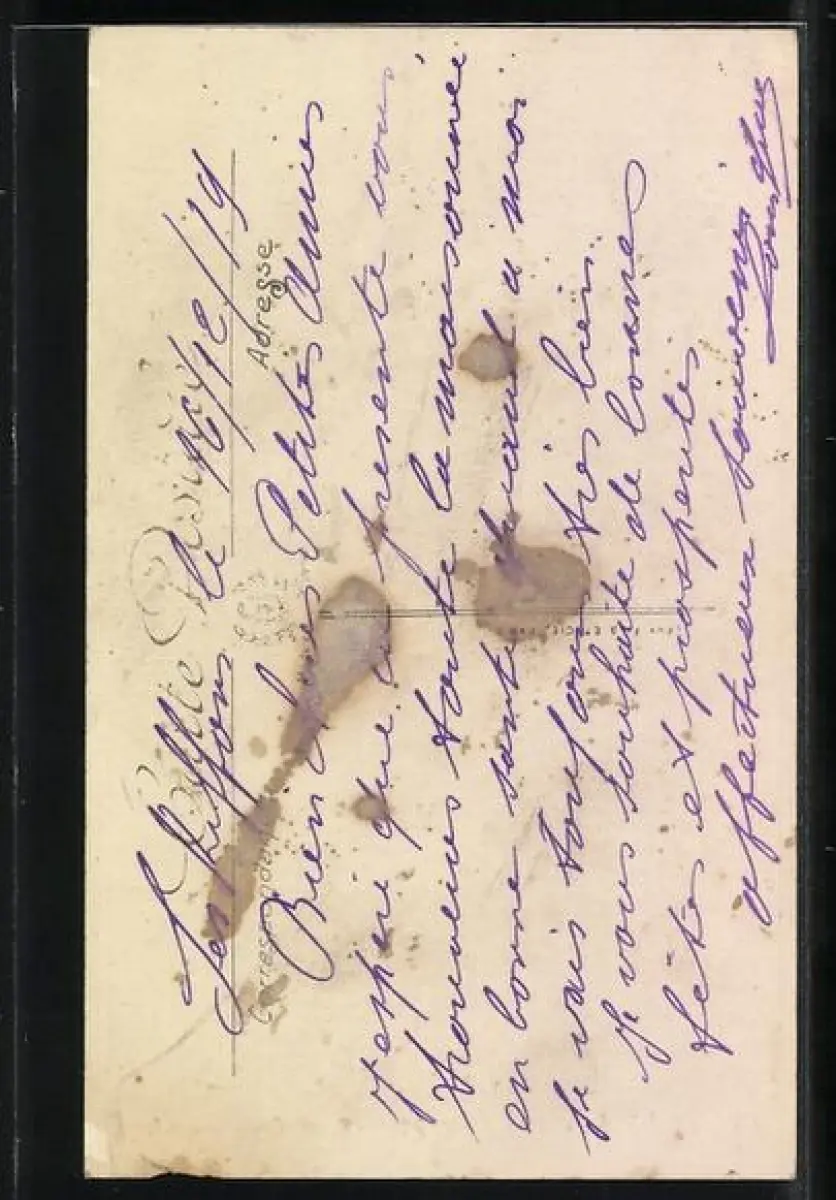 Carte Postale
Correspondance
Adresse
Les le 16/12/19
Bien chères Petites Amies
J'espere que la presente vous
trouveras toute la maisonnée
en bonne santé quand a moi
je vais toujours très bien.
Je vous souhaite de bonnes
fêtes et prosperites
affectueux souvenirs